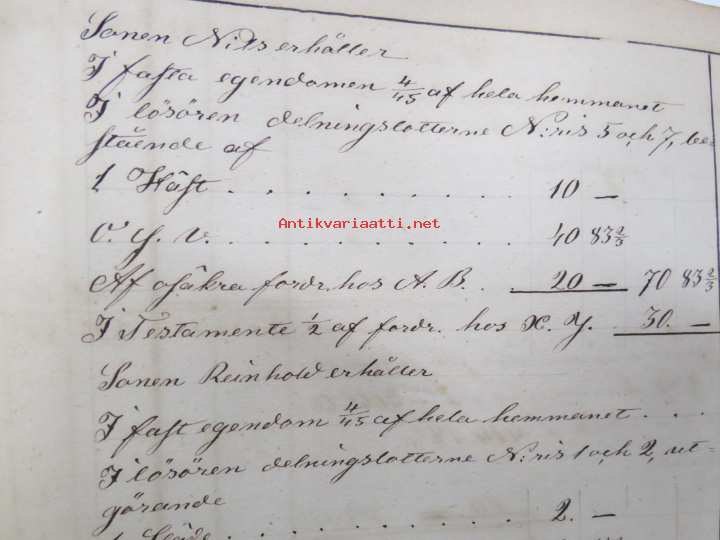 Sonen Nils erhåller
I fasta egendomen 4/45 af hela hemmanet
I lösören delningslotterne N:ris 5 och 7, be-
stående af
1 Häst . . . . . . . . . 10 —
O. S. V. . . . . . . . . . 40 83 2/3
Antikvariaatti.net
Af osäkra fordr. hos A. B. . . 20 — 70 83 2/3
I Testamente 1/2 af fordr. hos X. Y. 30. —
Sonen Reinhold erhåller
I fast egendom 4/45 af hela hemmanet . . .
I lösören delningslotterne N:ris 1 och 2, ut-
görande
. . . . . . . . . 2. —